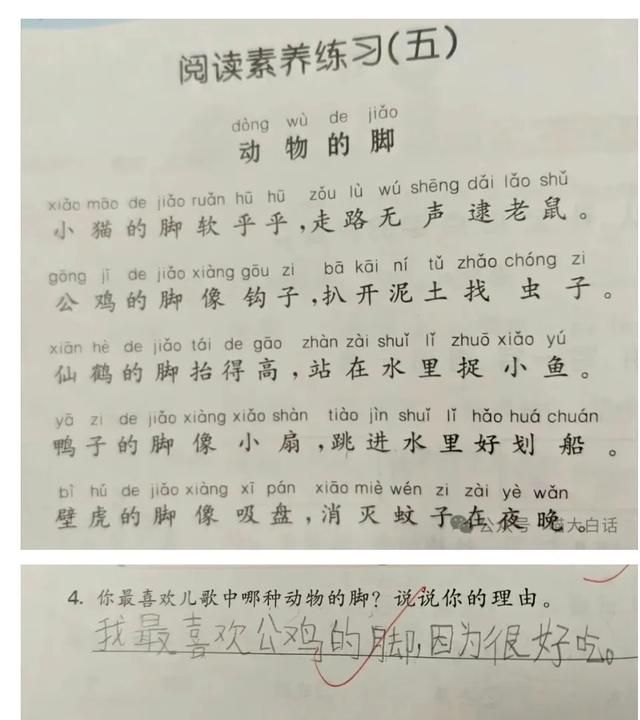 阅读素养练习(五)
dòng wù de jiǎo
动物的脚
xiǎo māo de jiǎo ruǎn hū hū zǒu lù wú shēng dǎi lǎo shǔ
小猫的脚软乎乎,走路无声逮老鼠。
gōng jī de jiǎo xiàng gōu zi bā kāi ní tǔ zhǎo chóng zi
公鸡的脚像钩子,扒开泥土找虫子。
xiān hè de jiǎo tái de gāo zhàn zài shuǐ lǐ zhuō xiǎo yú
仙鹤的脚抬得高,站在水里捉小鱼。
yā zi de jiǎo xiàng xiǎo shàn tiào jìn shuǐ lǐ hǎo huá chuán
鸭子的脚像小扇,跳进水里好划船。
bì hǔ de jiǎo xiàng xī pán xiāo miè wén zi zài yè wǎn
壁虎的脚像吸盘,消灭蚊子在夜晚。
公众号 大白话
4. 你最喜欢儿歌中哪种动物的脚?说说你的理由。
我最喜欢公鸡的脚,因为很好吃。